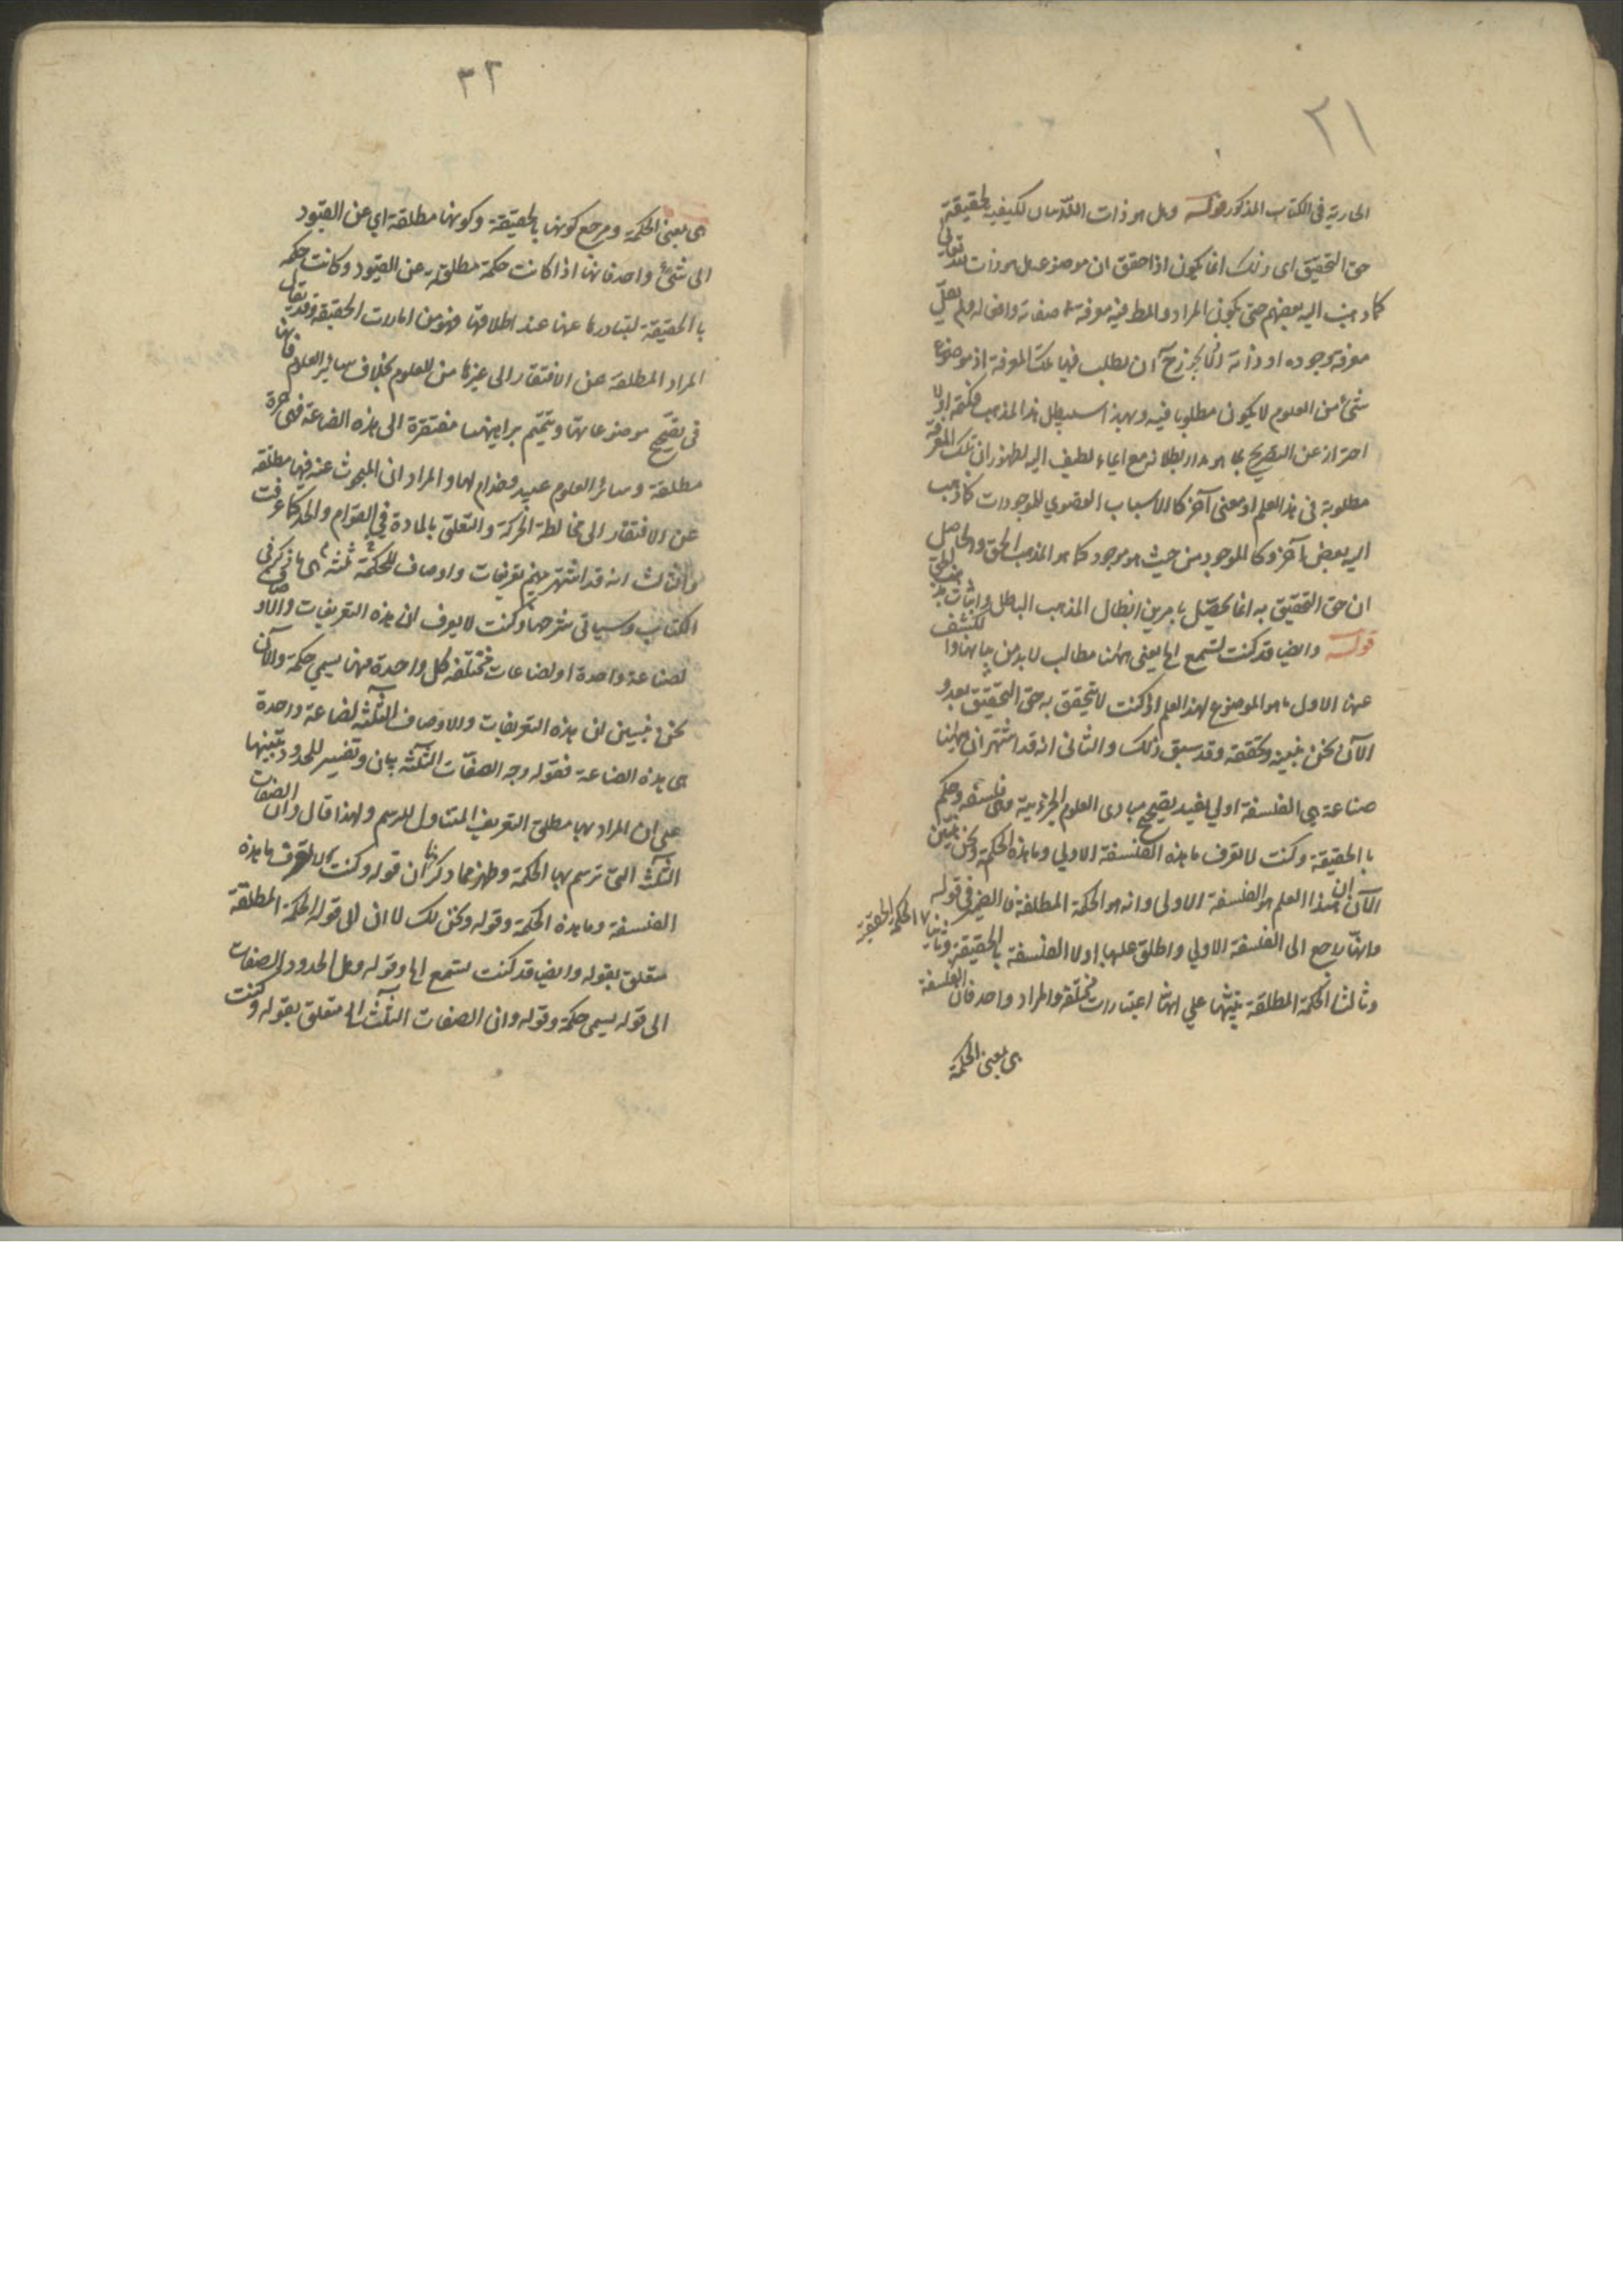 ٢١
الجارية في الكتاب المذكور قوله وهل هو ذات الله
حق التحقيق اى ذلك انما يكون اذا حقق ان موضوعه هل هو ذات الله تعالى
كما ذهب اليه بعضهم حتى يكون المراد والمط فيه معرفة صفاته وافعاله
معرفة وجوده او ذاته ان يطلب فيها تلك المعرفة اذ موضوع
شئ من العلوم لا يكون مطلوبا فيه وبهذا سيبطل هذا المذهب
احتراز عن التصريح بما هو مدار بطلانه مع ايماء لطيف اليه لظهور ان تلك المعرفة
مطلوبة فى هذا العلم او معنى آخر كالاسباب القصوي للموجودات كما ذهب
اليه بعض آخر وكالموجود من حيث هو موجود كما هو المذهب الحق والحاصل
ان حق التحقيق به انما يحصل بامرين ابطال المذهب الباطل واثبات المذهب الحق
قوله وايضا قد كنت تسمع اه يعنى ههنا مطالب لا بد من بيانها والكشف
عنها الاول ما هو الموضوع لهذا العلم اذ كنت لا تتحقق به حق التحقيق بعد و
الآن نحن نبينه ونحققه وقد سبق ذلك والثانى انه قد اشتهر ان ههنا
صناعة هى الفلسفة اولي تفيد تصحيح مبادى العلوم الجزئية وهى فلسفة وحكمة
بالحقيقة وكنت لا تعرف ما هذه الفلسفة الاولي وما هذه الحكمة ونحن نبين
الآن ان هذا العلم هو الفلسفة الاولى وانه هو الحكمة المطلقة فالضمير فى قوله
وانها راجع الى الفلسفة الاولي واطلق عليها اولا الفلسفة بالحقيقة وثانيا الحكمة الحقيقية
وثالثا الحكمة المطلقة تنبيها على انها اعتبارات مختلفة والمراد واحد فان الفلسفة
هى بعينها الحكمة
٢٢
هى بعينها الحكمة ومرجع كونها بالحقيقة وكونها مطلقة اي عن القيود
الى شئ واحد فانها اذا كانت حكمة مطلقة عن القيود وكانت حكمة
بالحقيقة لتبادرها عنها عند اطلاقها فهو من امارات الحقيقة وقد يقال
المراد المطلقة عن الافتقار الى غيرها من العلوم بخلاف سائر العلوم فانها
فى تصحيح موضوعاتها وتتميم براهينها مفتقرة الى هذه الصناعة فهى حرة
مطلقة وسائر العلوم عبيد وخدام لها او المراد ان المبحوث عنه فيها مطلقة
عن الافتقار الى مخالطة الحركة والتعلق بالمادة في القوام والحد كما عرفت
والثالث انه قد اشتهر بينهم تعريفات واوصاف للحكمة ثلثة هى ما ذكر فى
الكتاب وسياتى شرحها وكنت لا تعرف ان هذه التعريفات والاوصاف
لصناعة واحدة او لصناعات مختلفة كل واحدة منها يسمي حكمة والآن
نحن نبين ان هذه التعريفات والاوصاف الثلثة لصناعة واحدة
هى هذه الصناعة فقوله وجه الصفات الثلثة بيان وتفسير للحدود وتنبيها
على ان المراد بها مطلق التعريف المتناول للرسم ولهذا قال وان الصفات
الثلث التى ترسم بها الحكمة وظهر مما ذكرنا ان قوله وكنت لا تعرف ما هذه
الفلسفة وما هذه الحكمة وقوله ونحن لك الآن الى قوله الحكمة المطلقة
متعلق بقوله وايضا قد كنت تسمع اه وقوله وهل الحدود والصفات
الى قوله يسمى حكمة وقوله وان الصفات الثلث اه متعلق بقوله وكنت